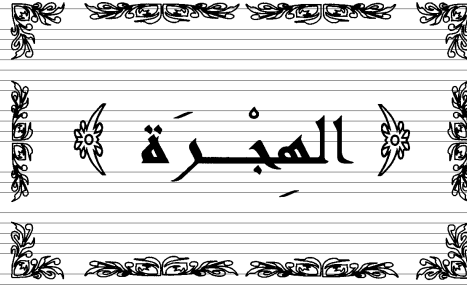 الهِجْـرَة